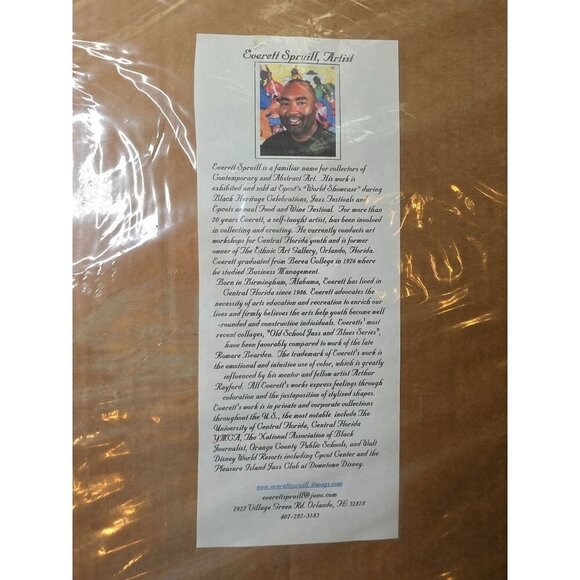 Everett Spruill, Artist
Everett Spruill is a familiar name for collectors of
Contemporary and Abstract Art. His work is
exhibited and sold at Epcot's "World Showcase" during
Black Heritage Celebrations, Jazz Festivals and
Epcots annual Food and Wine Festival. For more than
20 years Everett, a self-taught artist, has been involved
in collecting and creating. He currently conducts art
workshops for Central Florida youth and is former
owner of The Ethnic Art Gallery, Orlando, Florida.
Everett graduated from Berea College in 1976 where
he studied Business Management.
Born in Birmingham, Alabama, Everett has lived in
Central Florida since 1986. Everett advocates the
necessity of arts education and recreation to enrich our
lives and firmly believes the arts help youth become well
-rounded and constructive individuals. Everetts' most
recent collages, "Old School Jazz and Blues Series",
have been favorably compared to work of the late
Romare Bearden. The trademark of Everett's work is
the emotional and intuitive use of color, which is greatly
influenced by his mentor and fellow artist Arthur
Rayford. All Everett's works express feelings through
coloration and the juxtaposition of stylized shapes.
Everett's work is in private and corporate collections
throughout the U.S., the most notable include The
University of Central Florida, Central Florida
YMCA, The National Association of Black
Journalist, Orange County Public Schools, and Walt
Disney World Resorts including Epcot Center and the
Pleasure Island Jazz Club at Downtown Disney.
everettspruill@juno.com
7927 Village Green Rd. Orlando, Fl 32818
407-292-3183